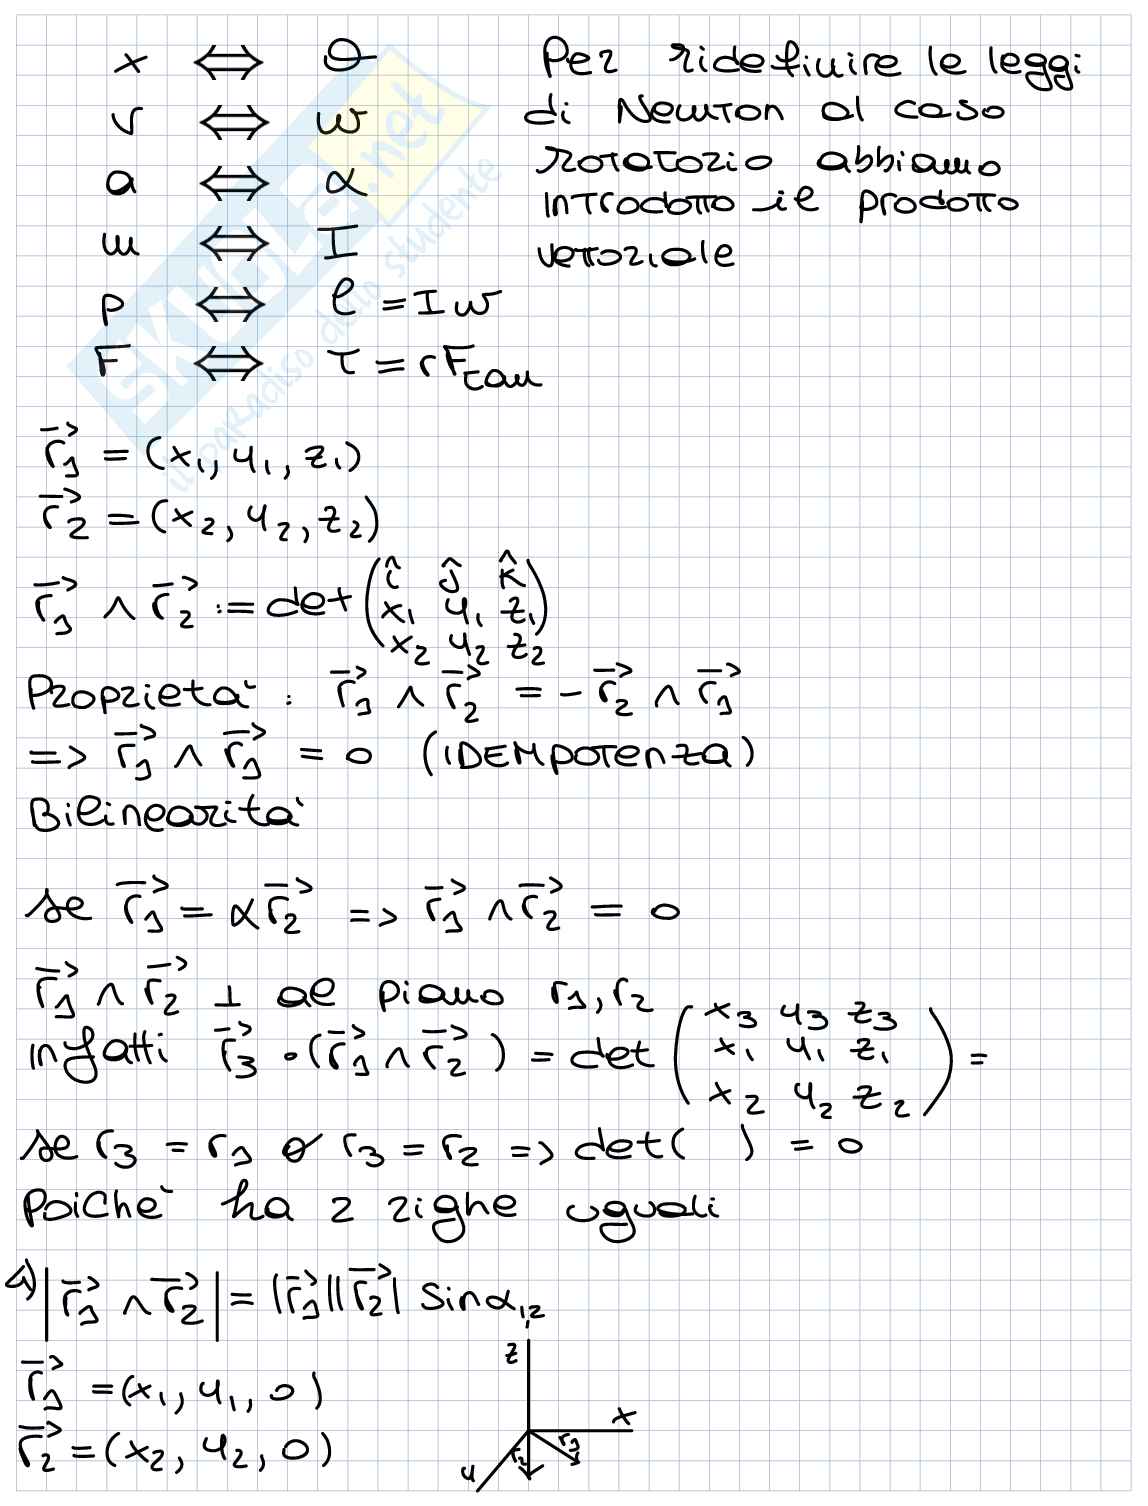 x ⟺ θ
v ⟺ w
a ⟺ α
m ⟺ I
p ⟺ l = Iw
F ⟺ τ = rF_tan
Per ridefinire le leggi
di Newton al caso
rotatorio abbiamo
introdotto il prodotto
vettoriale
SKUOLA.net
il paradiso dello studente
r⃗₁ = (x₁, y₁, z₁)
r⃗₂ = (x₂, y₂, z₂)
r⃗₁ ∧ r⃗₂ := det ( î ĵ k̂
x₁ y₁ z₁
x₂ y₂ z₂ )
Proprietà : r⃗₁ ∧ r⃗₂ = - r⃗₂ ∧ r⃗₁
=> r⃗₁ ∧ r⃗₁ = 0 (IDEMPOTENZA)
Bilinearità
se r⃗₁ = αr⃗₂ => r⃗₁ ∧ r⃗₂ = 0
r⃗₁ ∧ r⃗₂ ⊥ al piano r₁, r₂
infatti r⃗₃ • (r⃗₁ ∧ r⃗₂) = det ( x₃ y₃ z₃
x₁ y₁ z₁
x₂ y₂ z₂ ) =
se r₃ = r₁ o r₃ = r₂ => det( ) = 0
Poichè ha 2 righe uguali
1) |r⃗₁ ∧ r⃗₂| = |r⃗₁||r⃗₂| sinα₁,₂
r⃗₁ = (x₁, y₁, 0)
r⃗₂ = (x₂, y₂, 0)
z
x
y
r₂
r₁